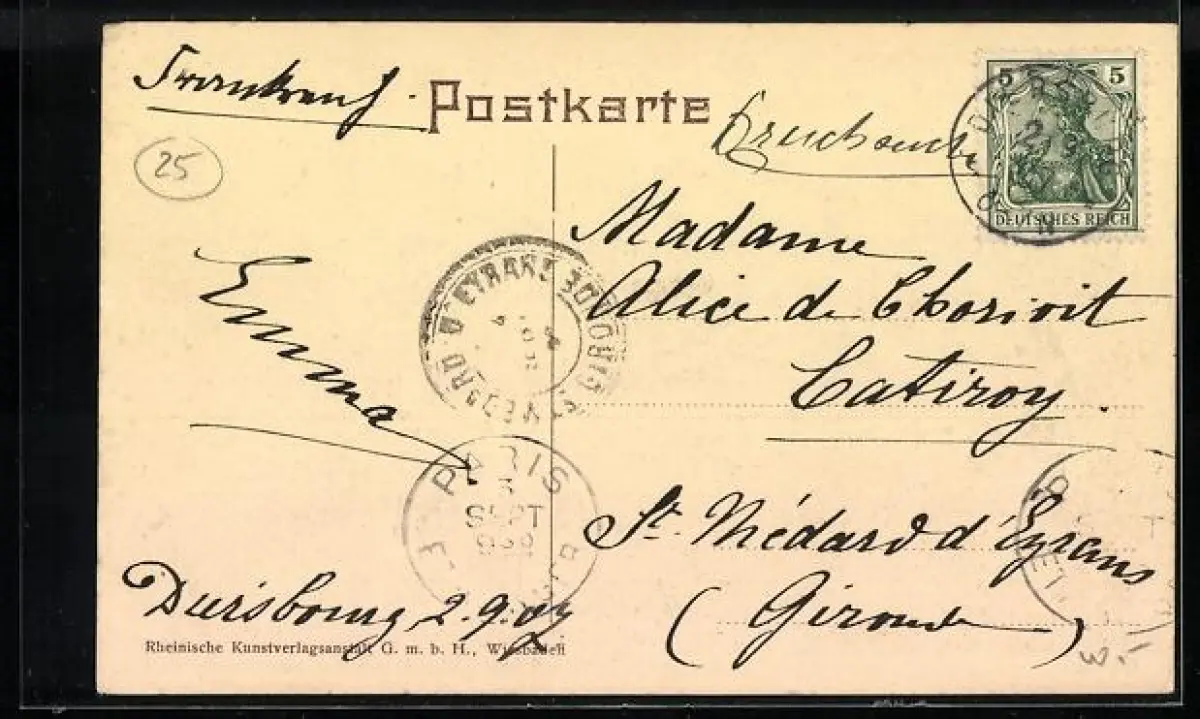 Frankreich
Postkarte
Drucksache
5 5
DEUTSCHES REICH
25
Madame
Alice de
Catiroy.
St. Médard d'Eyrans
(Gironde)
Emma
PARIS
3
SEPT
GIRONDE
D'EYRANS
Duisbourg 2.9.07
Rheinische Kunstverlagsanstalt G. m. b. H., Wiesbaden